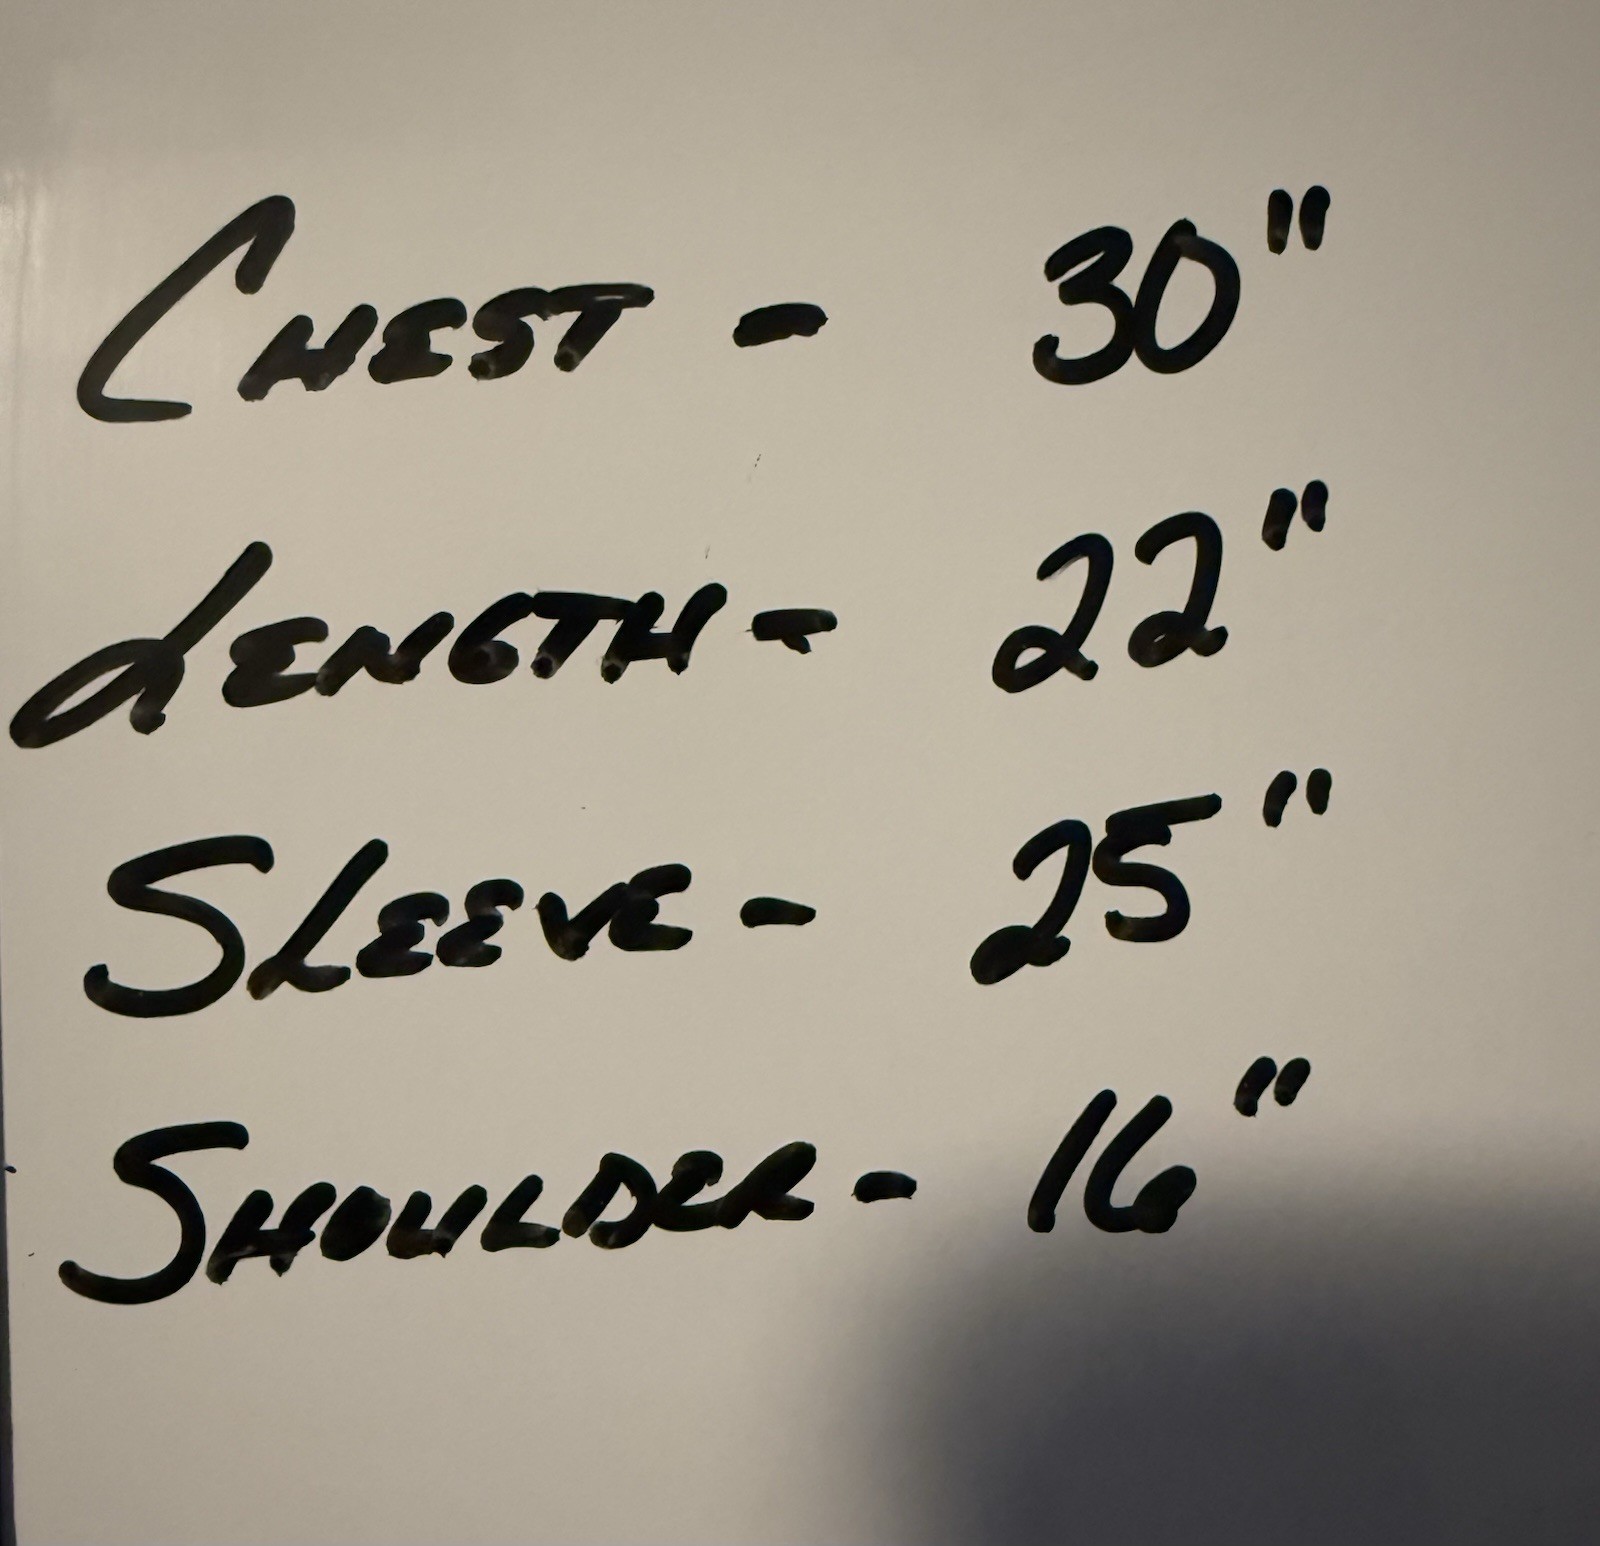 CHEST - 30"
LENGTH - 22"
SLEEVE - 25"
SHOULDER - 16"